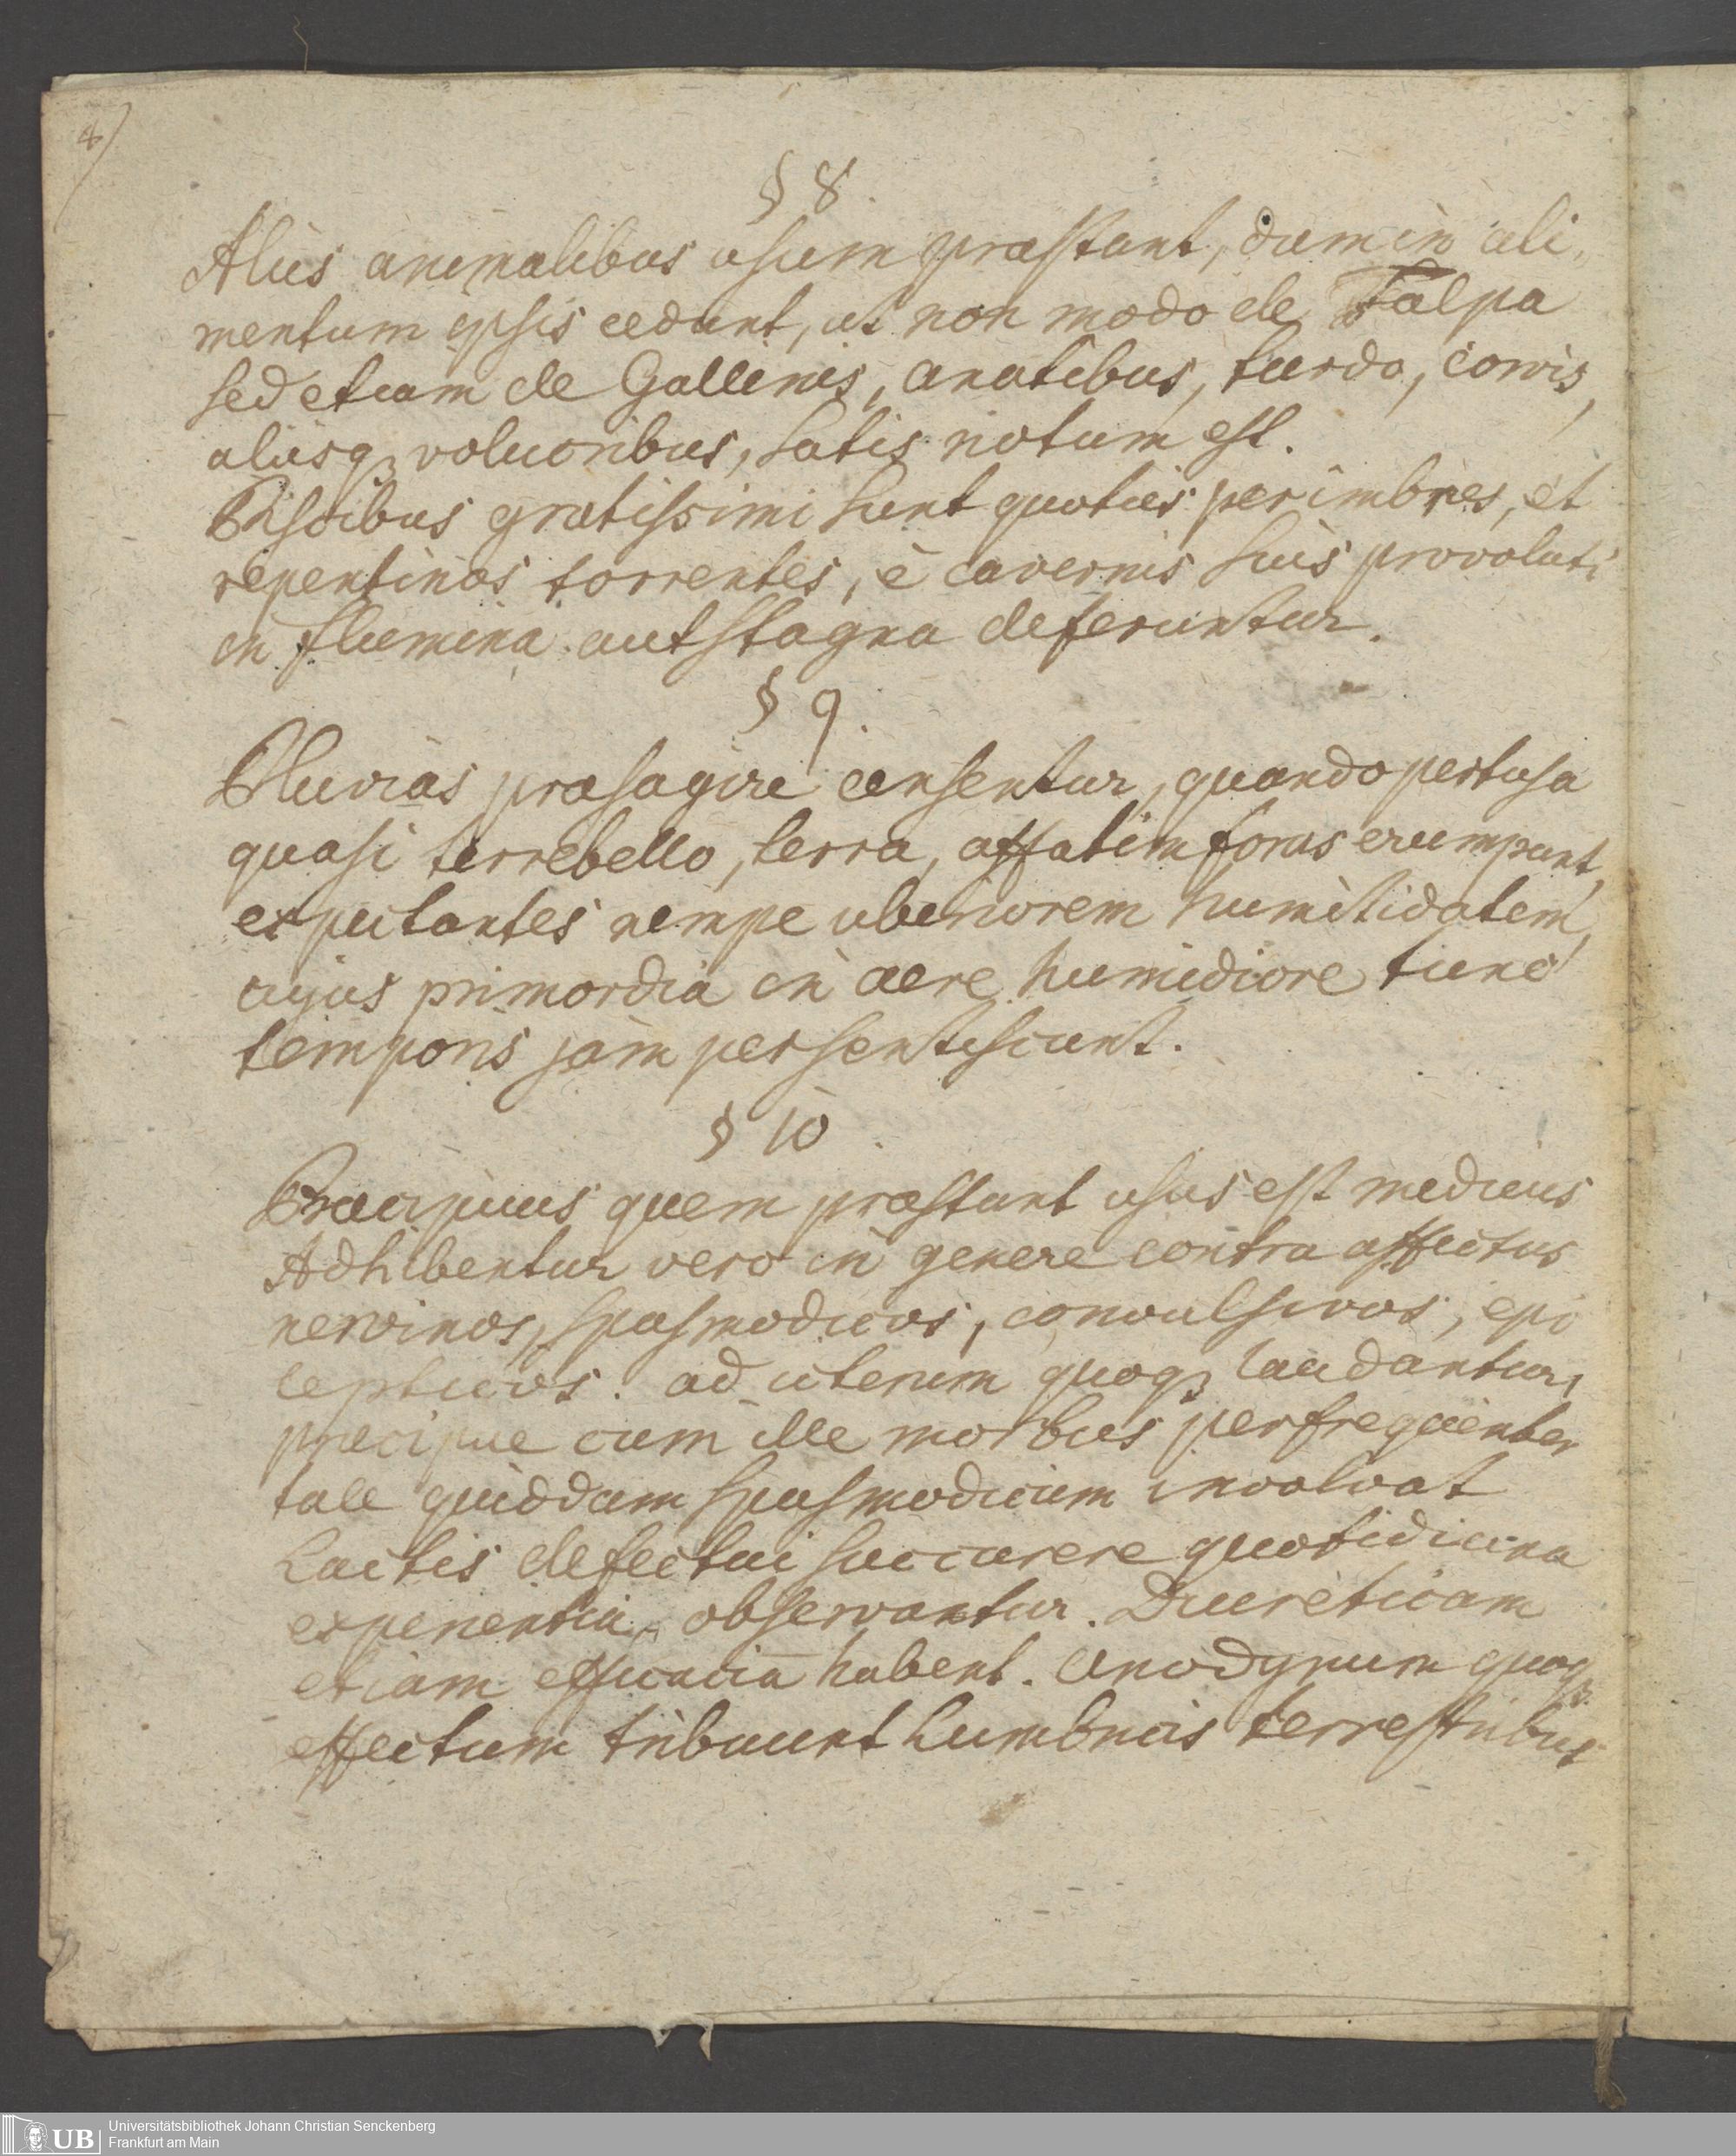 4)
§ 8.
Aliis animalibus usum præstant, dum in ali,
mentum ipsis cedunt, ut non modo de Talpa
sed etiam de Gallinis, anatibus, turdo, corvis,
aliisq₃ volucribus, satis notum est.
Piscibus gratissimi sunt quoties per imbres, et
repentinos torrentes, è cavernis suis provoluti
in flumina aut stagna deferuntur.
§ 9.
Pluvias præsagire censentur, quando pertusa
quasi terrebello, terra, affatim foras erumpunt,
expectantes nempe uberiorem humitidatem,
cujus primordia in aere humidiore tunc
temporis jam persentiscunt.
§ 10.
Præcipuus quem præstant usus est medicus
Adhibentur vero in genere contra affectus
nervinos, spasmodicos, convulsivos, epi
lepticos. ad uterum quoq₃ laudantur,
precipue cum ille morbus perfrequenter
tale quiddam spasmodicum involvat
Lactis defectui succurere quotidiana
experientia observantur. Diureticam
etiam efficaciā habent. Anodynum quoq₃
effectum tribuunt Lumbricis terrestribus
UB
Universitätsbibliothek Johann Christian Senckenberg
Frankfurt am Main